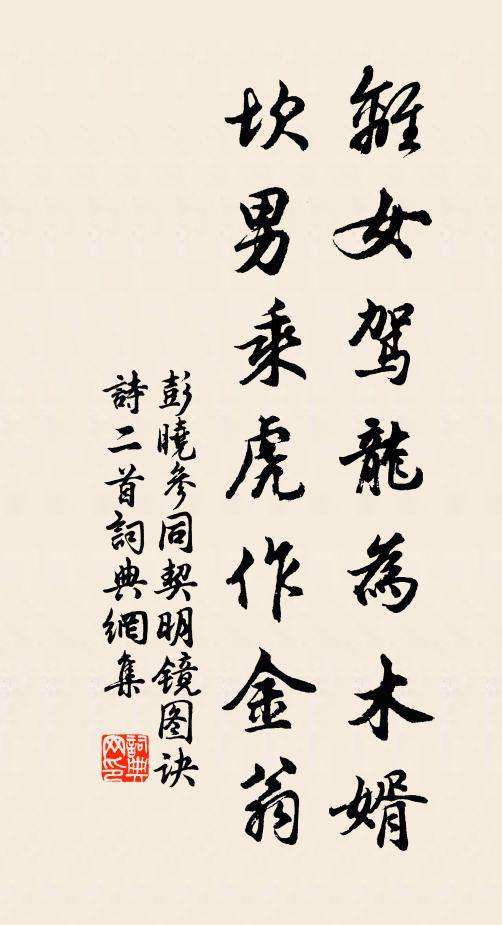 離女駕龍為木婿
坎男乘虎作金翁
彭曉參同契明鏡图诀
詩二首詞典網集
詞典網印